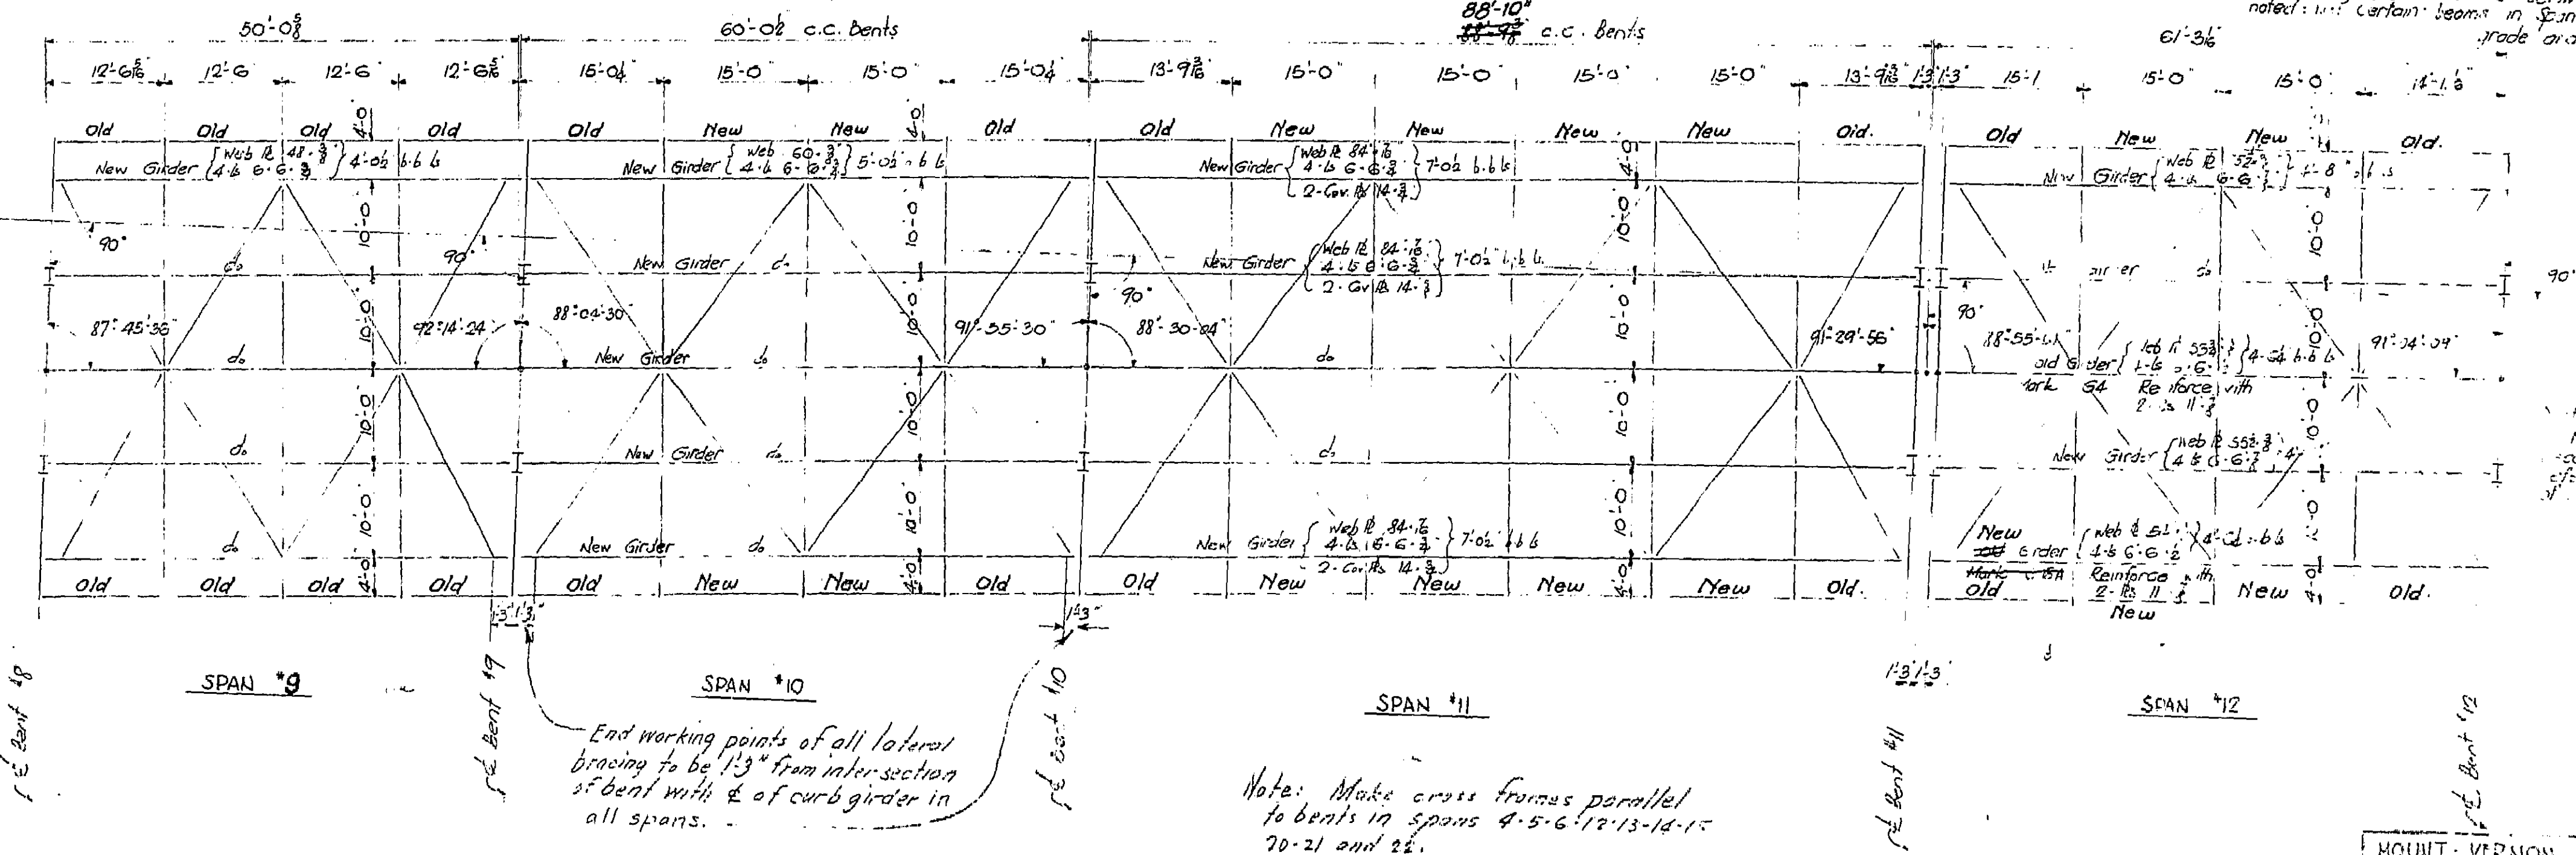 50'-0⅝"
60'-0½" c.c. Bents
88'-10"
c.c. Bents
61'-3⅛"
noted: certain beams in Span
grade
12'-6 5/16" 12'-6" 12'-6" 12'-6 5/16" 15'-0¼" 15'-0" 15'-0" 15'-0¼" 13'-9 3/16" 15'-0" 15'-0" 15'-0" 15'-0" 13'-9 3/16" 1'-3" 1'-3" 15'-1 15'-0" 15'-0"
Old Old Old Old Old New New Old Old New New New New Old. Old New New Old.
4'-0 4'-0 4'-0
New Girder { Web ℞ 48·⅜ 4·Ls 6·6·¾ } 4'-0½ b.b Ls
New Girder { Web 60·⅜ 4·Ls 6·6·¾ } 5'-0½ b.b Ls
New Girder { Web ℞ 84·7/16 4·Ls 6·6·¾ 2·Cov. ℞s 14·¾ } 7'-0½ b.b Ls
New Girder { Web ℞ 4·Ls 6·6·
10'-0" 10'-0" 10'-0" 10'-0"
90° 90° 90° 90° 90°
do New Girder do New Girder { Web ℞ 84·7/16 4·Ls 6·6·¾ 2·Cov ℞s 14·¾ } 7'-0½" b.b Ls do
87°-45'-36" 92°-14'-24" 88°-04'-30" 91°-55'-30" 88°-30'-04" 91°-29'-56" 88°-55' 91°-04'-09"
10'-0" 10'-0" 10'-0" 10'-0"
do New Girder do do Old Girder
G4 Reinforce with
10'-0" 10'-0" 10'-0" 10'-0"
do New Girder do do New Girder { Web ℞ 4 Ls 6·6·
10'-0" 10'-0" 10'-0"
do New Girder do New Girder { Web ℞ 84·7/16 4·Ls 6·6·¾ 2·Cov ℞s 14·¾ } 7'-0½" b.b Ls New Old Girder { Web ℞ 4·Ls 6·6·
Mark Reinforce with
4'-0" 4'-0" 4'-0" 4'-0"
Old Old Old Old Old New New Old Old New New New New Old. Old 2·℞s 11· New Old.
New
1'-3" 1'-3" 1'-3"
1'-3" 1'-3"
SPAN #9
SPAN #10
SPAN #11
SPAN #12
℄ Bent #8
℄ Bent #9
℄ Bent #10
℄ Bent #11
℄ Bent #12
End working points of all lateral
bracing to be 1'-3" from intersection
of bent with ℄ of curb girder in
all spans.
Note: Make cross frames parallel
to bents in spans 4·5·6·12·13·14·15
20·21 and 22.
MOUNT· VERNON